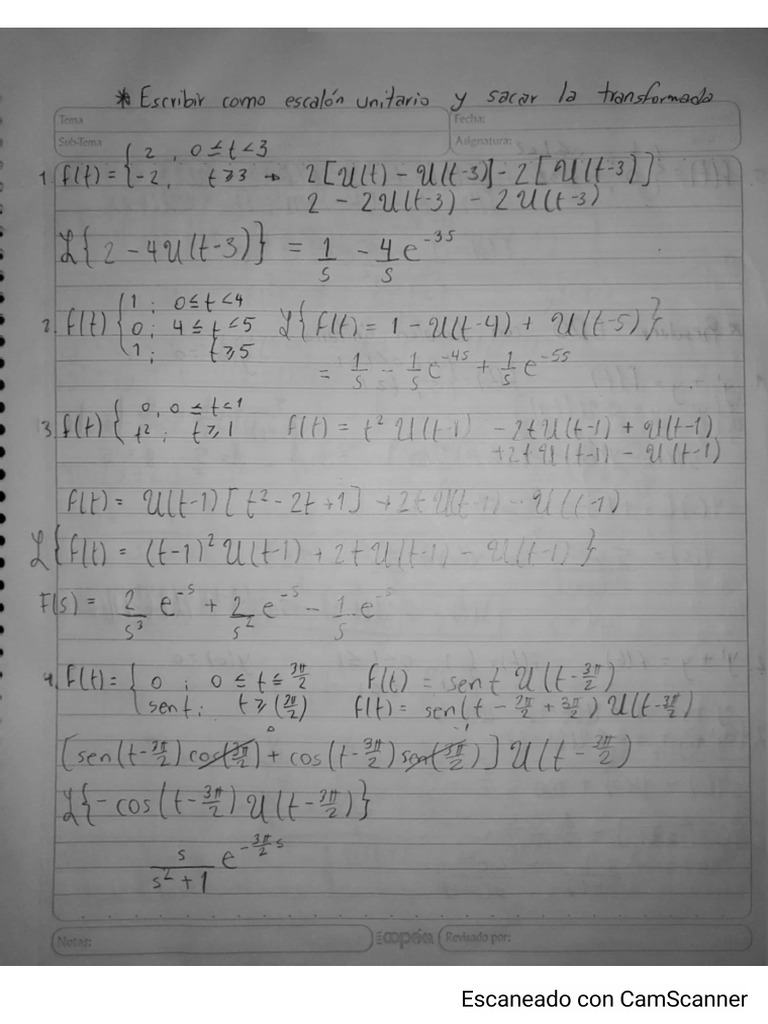 * Escribir como escalón unitario y sacar la transformada
Tema
Fecha:
Sub-Tema
Asignatura:
1. f(t) = { 2 , 0 ≤ t < 3
-2, t ≥ 3 → 2[U(t) - U(t-3)] - 2[U(t-3)]
2 - 2U(t-3) - 2U(t-3)
ℒ{2 - 4U(t-3)} = 1/s - 4/s e^-3s
2. f(t) { 1 ; 0 ≤ t < 4
0; 4 ≤ t < 5 ℒ{f(t) = 1 - U(t-4) + U(t-5)}
1 ; t ≥ 5
= 1/s - 1/s e^-4s + 1/s e^-5s
3. f(t) { 0, 0 ≤ t < 1
t² ; t ≥ 1 f(t) = t² U(t-1) - 2tU(t-1) + U(t-1)
+ 2tU(t-1) - U(t-1)
f(t) = U(t-1)[t² - 2t + 1] + 2tU(t-1) - U(t-1)
ℒ{f(t) = (t-1)² U(t-1) + 2tU(t-1) - U(t-1)}
F(s) = 2/s³ e^-s + 2/s² e^-s - 1/s e^-s
4. f(t) = { 0 ; 0 ≤ t ≤ 3π/2 f(t) = sen t U(t - 3π/2)
sen t ; t ≥ (3π/2) f(t) = sen(t - 3π/2 + 3π/2) U(t - 3π/2)
0 -1
[sen(t - 3π/2) cos(3π/2) + cos(t - 3π/2) sen(3π/2)] U(t - 3π/2)
ℒ{-cos(t - 3π/2) U(t - 3π/2)}
s/(s² + 1) e^-3π/2 s
Notas:
coprisa
Revisado por:
Escaneado con CamScanner